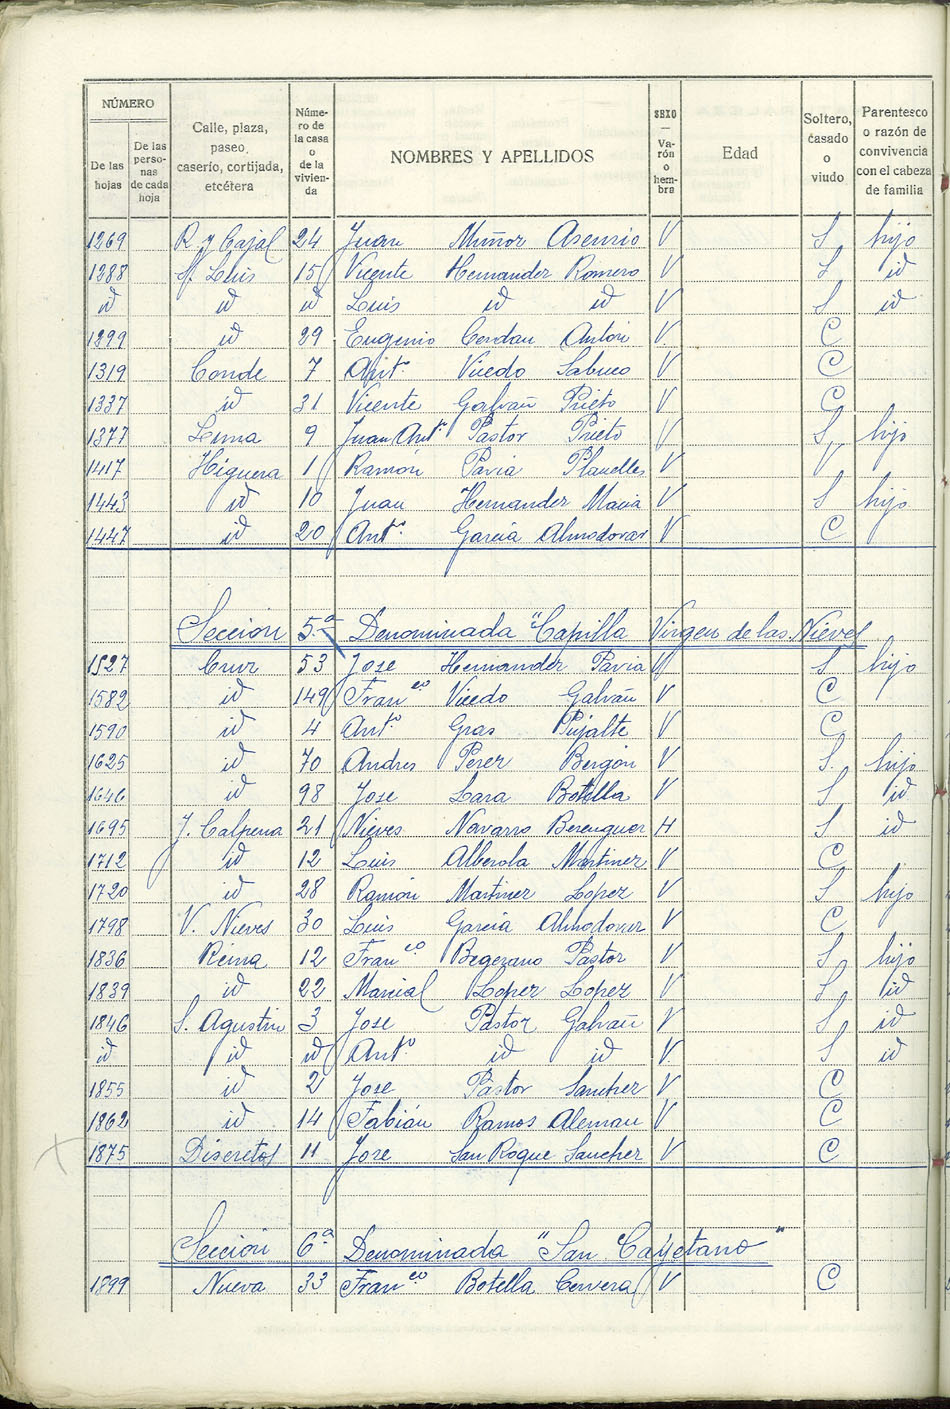 NÚMERO
De las hojas
De las personas de cada hoja
Calle, plaza, paseo, caserío, cortijada, etcétera
Número de la casa o de la vivienda
NOMBRES Y APELLIDOS
SEXO — Varón o hembra
Edad
Soltero, casado o viudo
Parentesco o razón de convivencia con el cabeza de familia
1269 R. y Cajal 24 Juan Muñoz Asensio V S hijo
1288 S. Luis 15 Vicente Hernandez Romero V S id
id id id Luis id id V S id
1299 id 29 Eugenio Cerdan Antón V. C
1319 Conde 7 Antº Vicedo Sabuco V C
1337 id 31 Vicente Galvañ Prieto V C
1377 Luna 9 Juan Antº Pastor Prieto V S hijo
1417 Higuera 1 Ramón Pavia Planelles V V
1443 id 10 Juan Hernandez Maciá V S hijo
1447 id 20 Antº. Garcia Almodovar V C
Sección 5ª Denominada "Capilla Virgen de las Nieves
1527 Cruz 53 Jose Hernandez Pavia V S hijo
1582 id 149 Franco Vicedo Galvañ V C
1590 id 4 Antº Gras Pujalte V C
1625 id 70 Andres Perez Bergón V S. hijo
1646 id 98 Jose Lara Botella V S id
1695 J. Calpena 21 Nieves Navarro Berenguer H S id
1712 id 12 Luis Alberola Martinez V C
1720 id 28 Ramón Martinez Lopez V S hijo
1798 V. Nieves 30 Luis Garcia Almodovar V C
1836 Reina 12 Franco Begerano Pastor V S hijo
1839 id 22 Marcial Lopez Lopez V S id
1846 S. Agustin 3 Jose Pastor Galvañ V S id
id id id Antº id id V. S id
1855 id 2 Jose Pastor Sanchez V C
1862 id 14 Fabián Ramos Aleman V C
1875 Discretos 11 Jose San Roque Sanchez V C
Sección 6ª Denominada "San Cayetano"
1899 Nueva 33 Franco Botella Cervera V C